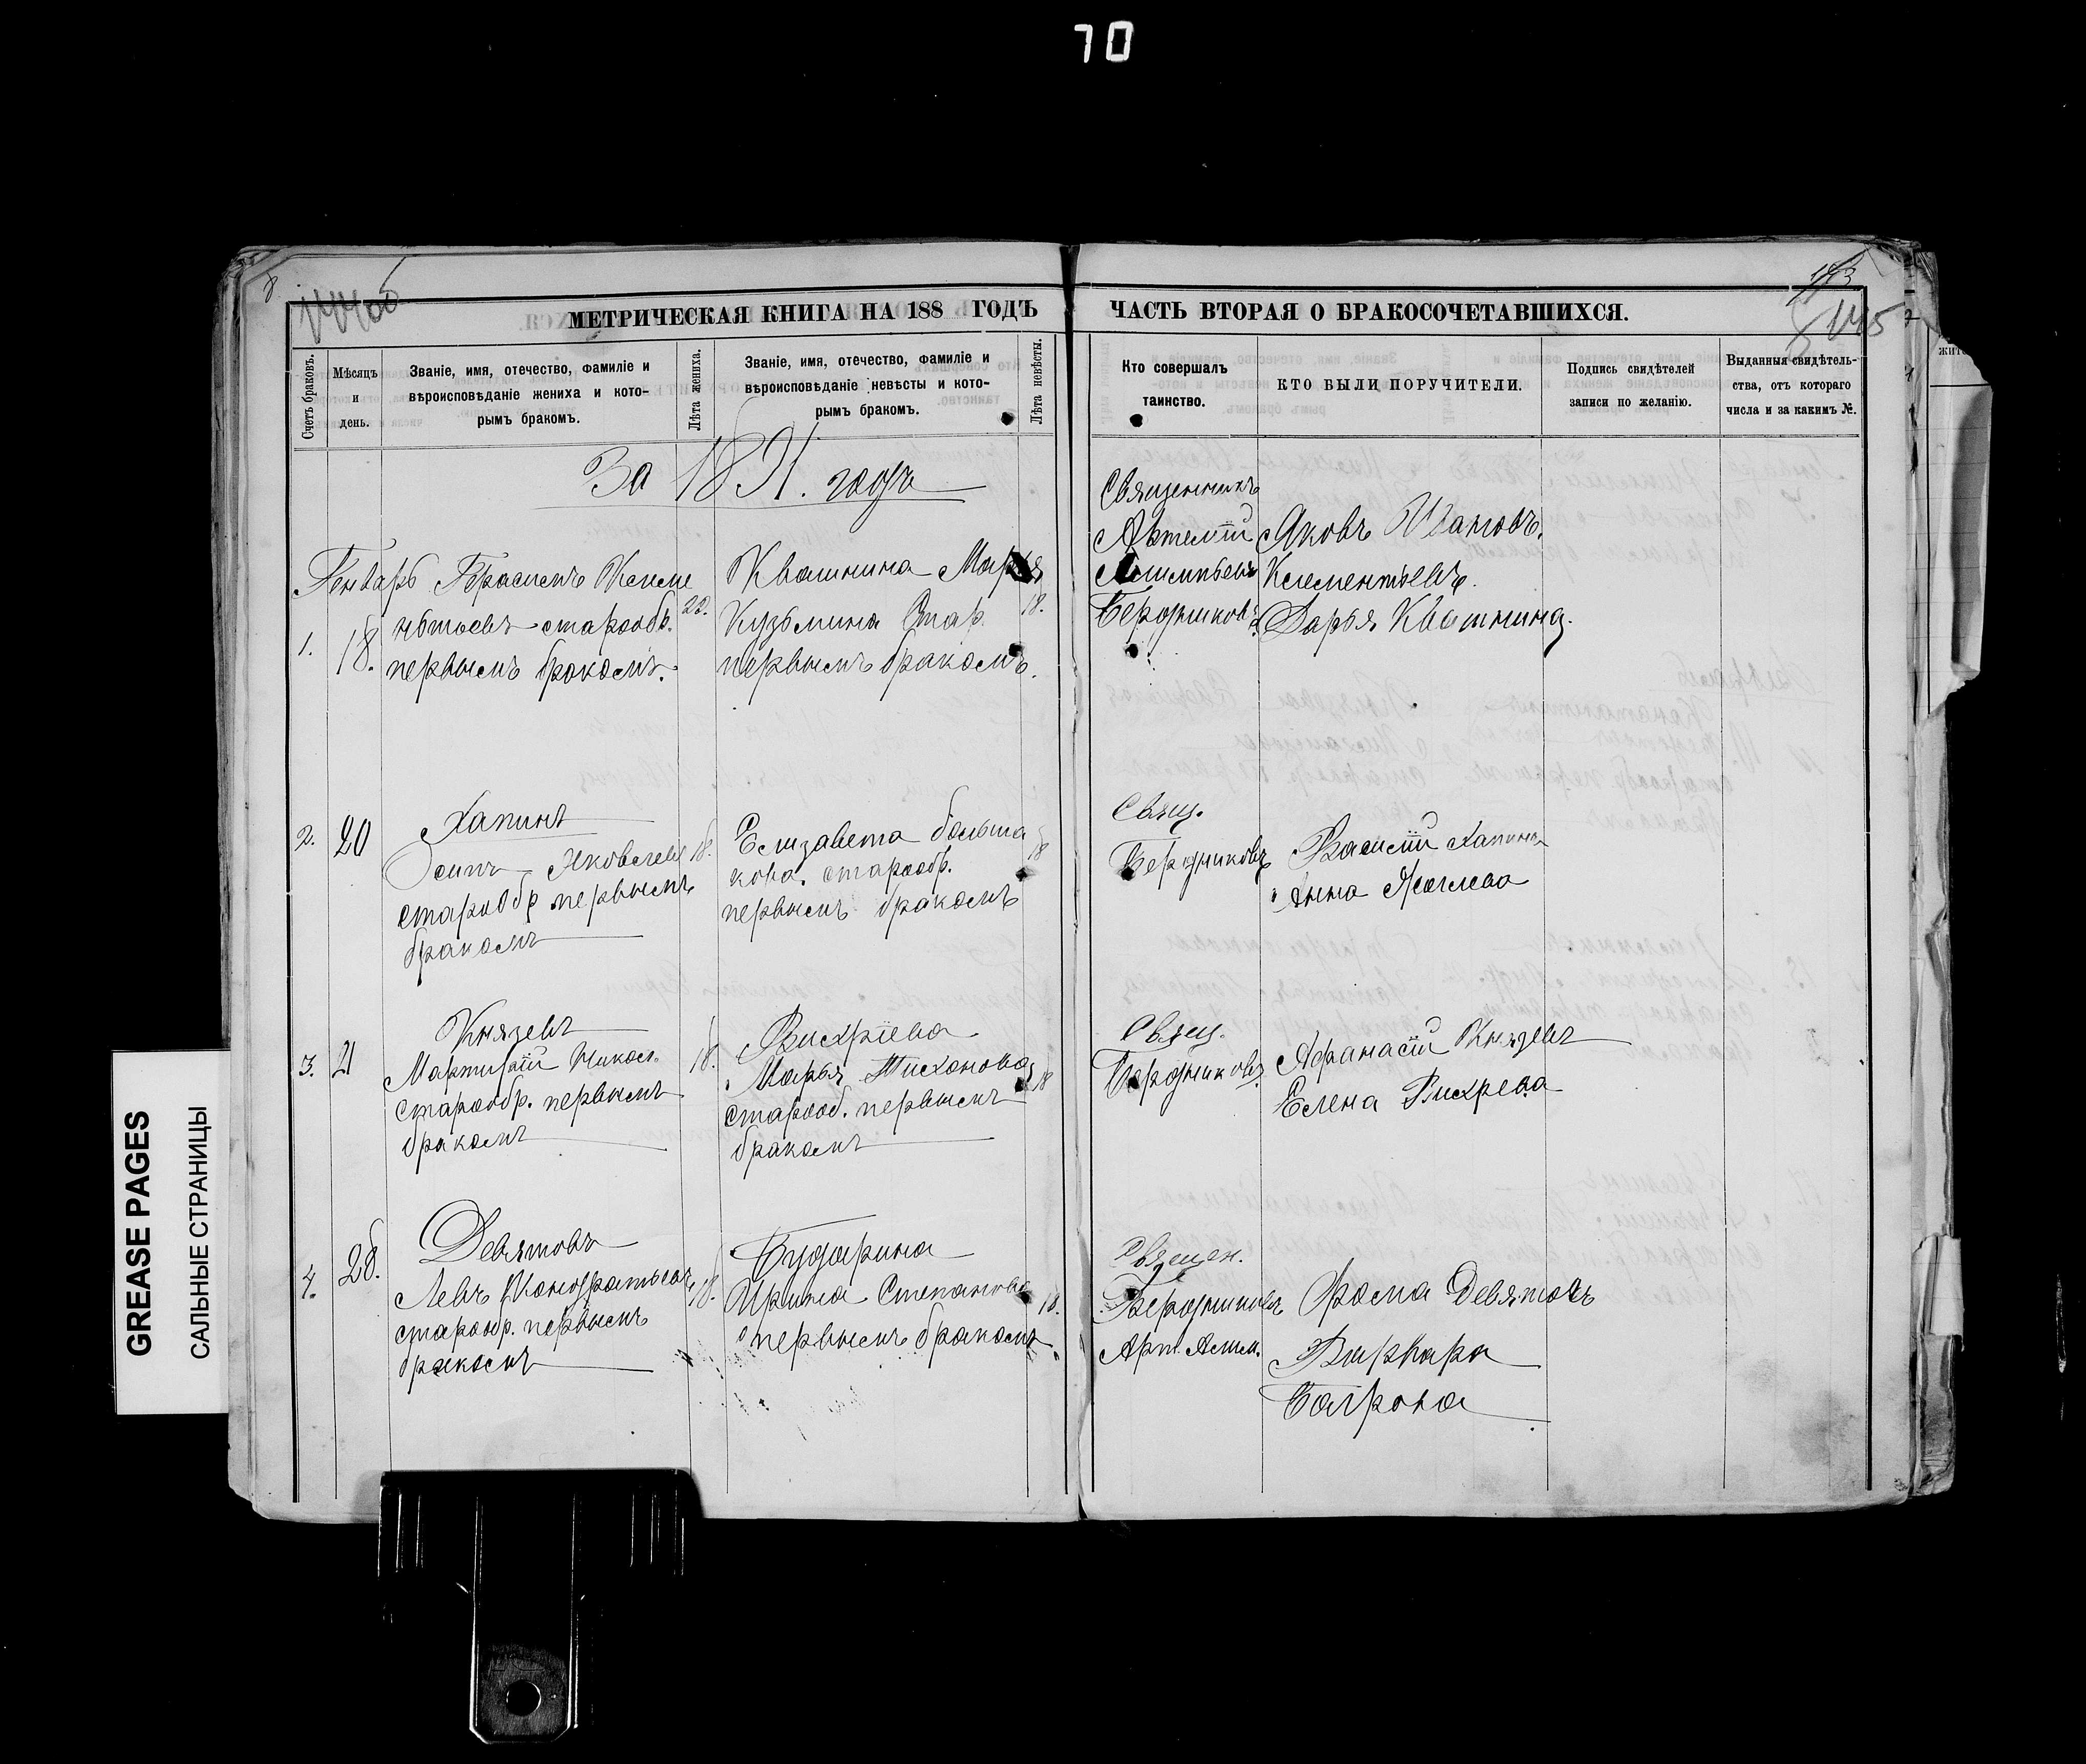 70
8
144об
143
145
МЕТРИЧЕСКАЯ КНИГА НА 188 ГОДЪ
ЧАСТЬ ВТОРАЯ О БРАКОСОЧЕТАВШИХСЯ.
Счетъ браковъ.
Мѣсяцъ
и
день.
Званіе, имя, отечество, фамиліе и
вѣроисповѣданіе жениха и кото-
рымъ бракомъ.
Лѣта жениха.
Званіе, имя, отечество, фамиліе и
вѣроисповѣданіе невѣсты и кото-
рымъ бракомъ.
Лѣта невѣсты.
Кто совершалъ
таинство.
КТО БЫЛИ ПОРУЧИТЕЛИ.
Подпись свидѣтелей
записи по желанію.
Выданныя свидѣтель-
ства, отъ котораго
числа и за какимъ №.
За 1891. годъ
Генварь
1.
18.
Герасимъ Клеме
нтьевъ старообр.
первымъ бракомъ.
20.
Квашнина Марья
Кузьмина Стар.
первымъ бракомъ.
18.
Священникъ
Алимпьевъ
Бердниковъ.
Яковъ Ивановъ.
Клементьевъ.
Дарья Квашнина.
2.
20
Хапинъ
Осипъ Яковлевъ
старообр первымъ
бракомъ
18.
Елизавета больша
кова. старообр.
первымъ бракомъ
18
Свящ.
Бердниковъ
Василій Хапинъ
Анна
3.
21
Князевъ
Никол.
старообр. первымъ
бракомъ
18.
Вихріева
Марья Тихонова
старооб. первымъ
бракомъ
18
Свящ.
Бердниковъ.
Афанасій Князевъ
Елена Вихрева
4.
28.
Девятовъ
Левъ Кондратьевъ
старообр. первымъ
бракомъ
18.
Бударина
Ирина Степанова
первымъ бракомъ.
18.
Священ.
Бердниковъ
Арт. Алим.
Фома Девятовъ
Варвара
Багрова
GREASE PAGES
САЛЬНЫЕ СТРАНИЦЫ